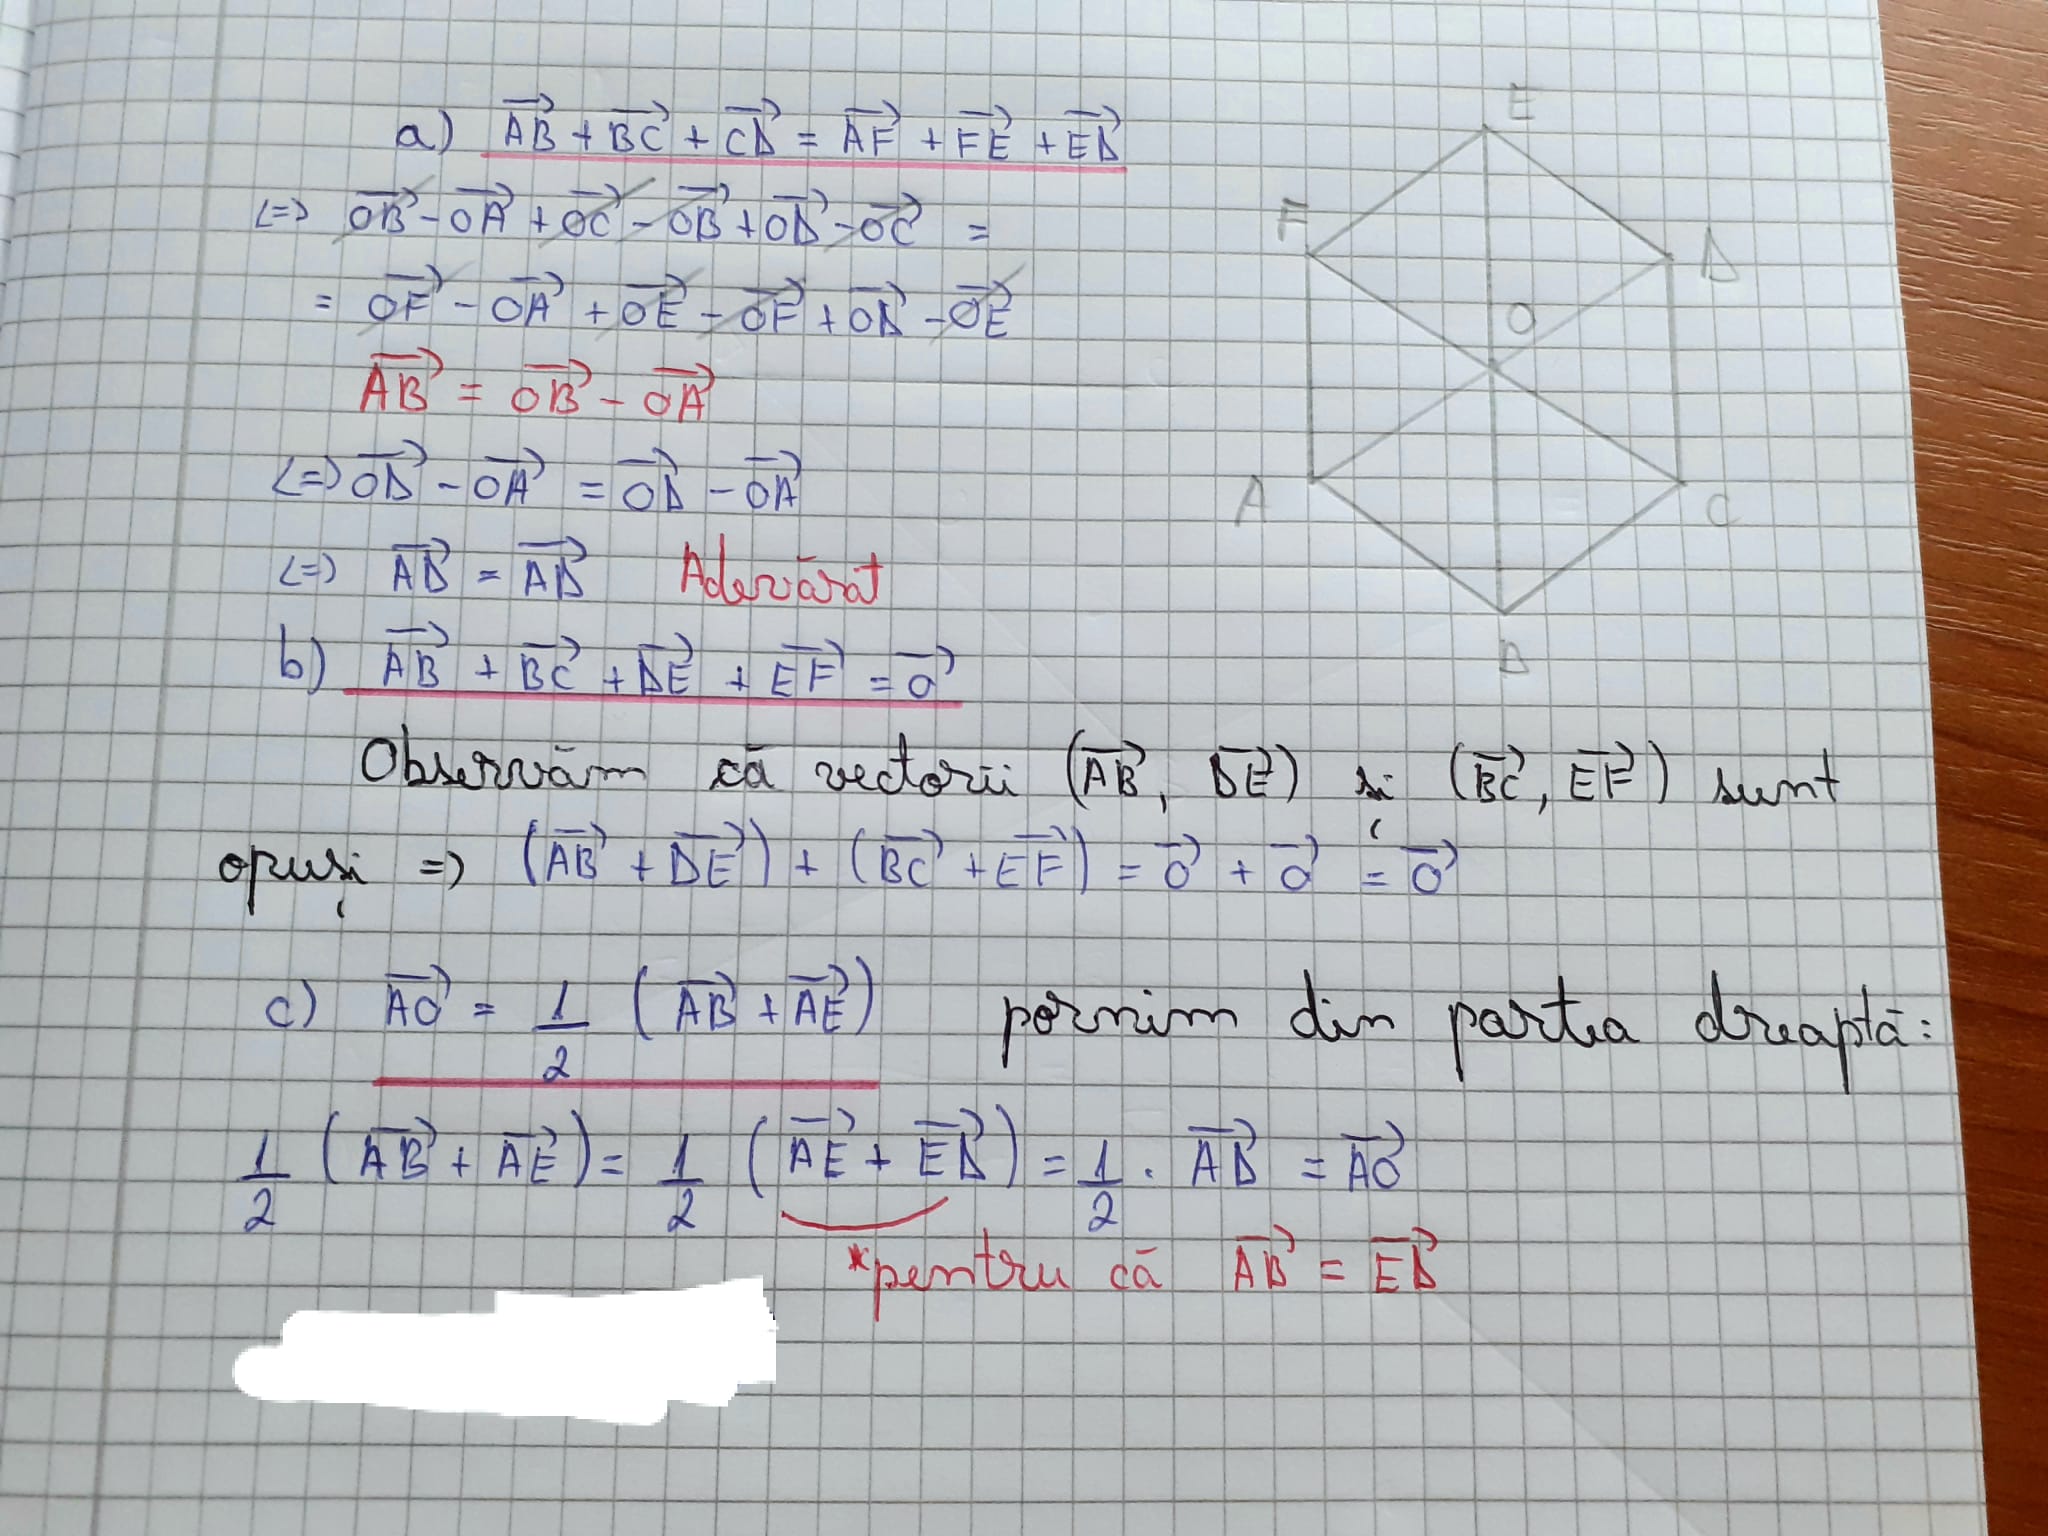 a) AB + BC + CD = AF + FE + ED
<=> OB - OA + OC - OB + OD - OC =
= OF - OA + OE - OF + OD - OE
AB = OB - OA
<=> OD - OA = OD - OA
<=> AD = AD Adevărat
b) AB + BC + DE + EF = 0
Observăm că vectorii (AB, DE) și (BC, EF) sunt
opuși => (AB + DE) + (BC + EF) = 0 + 0 = 0
c) AO = 1/2 (AB + AE) pornim din partea dreaptă:
1/2 (AB + AE) = 1/2 (AE + ED) = 1/2 · AD = AO
*pentru că AB = ED
E
F
D
O
A
C
B